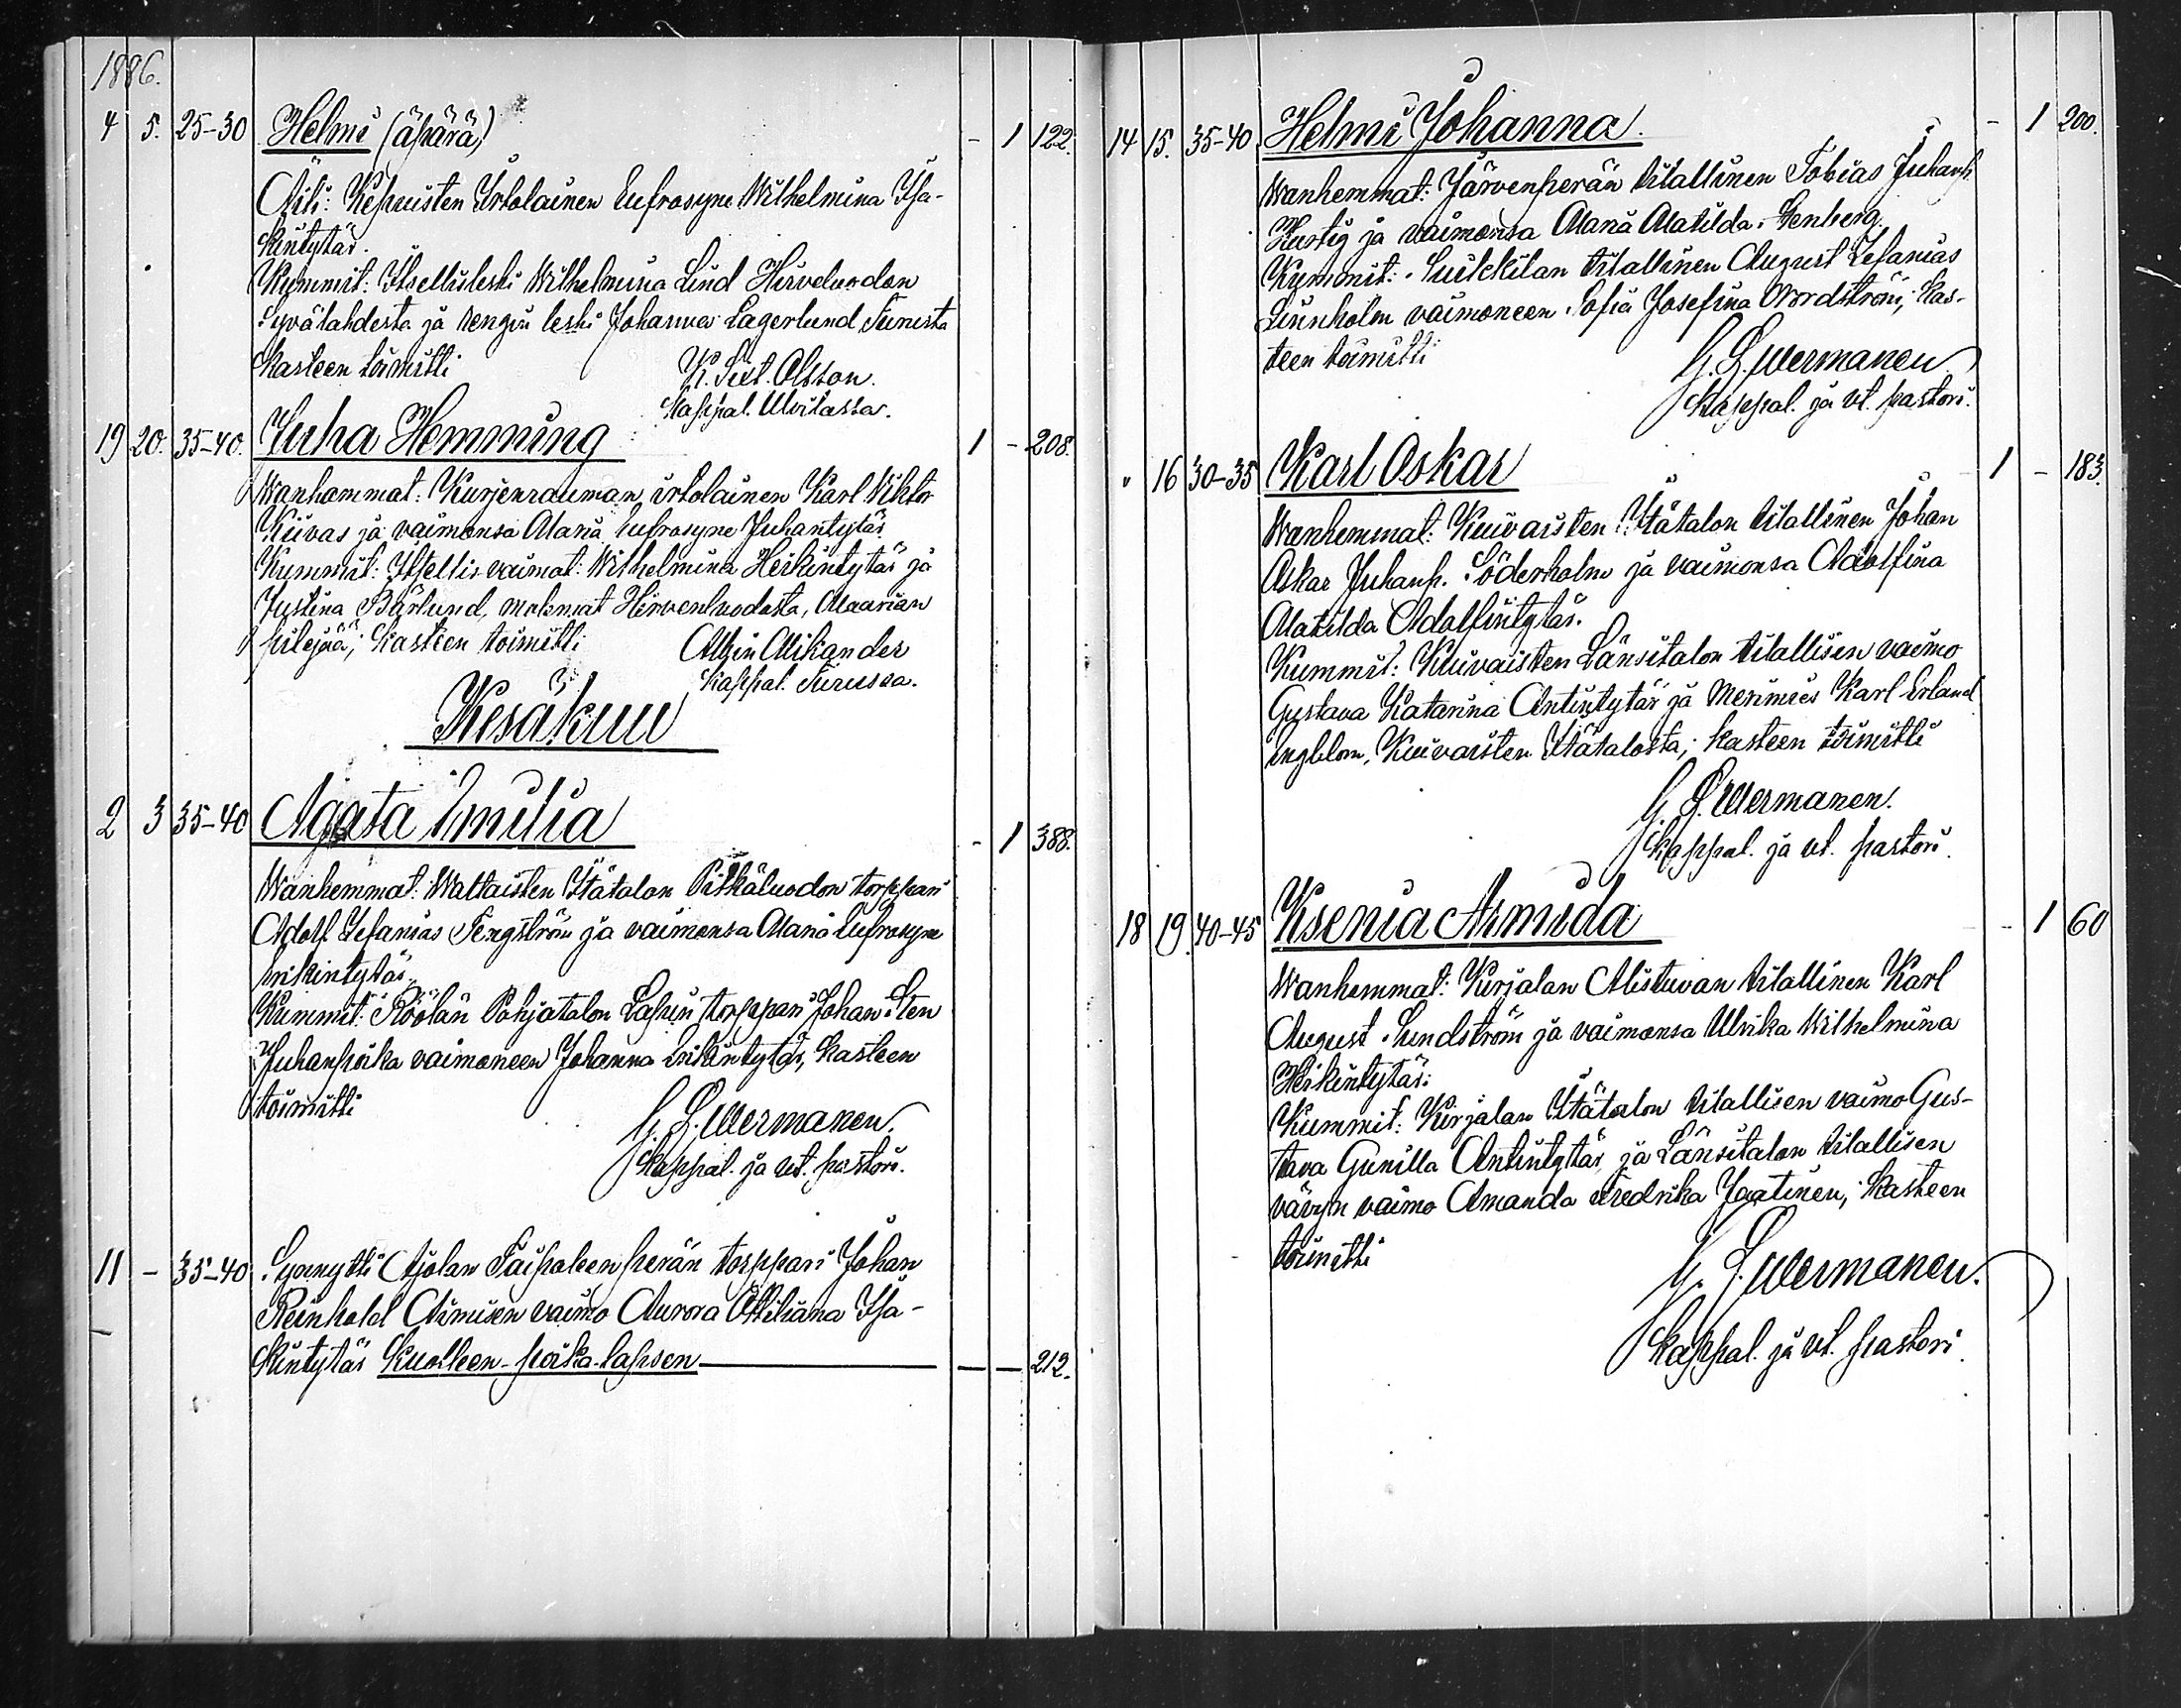 1886.
4 5. 25-30 Helmi (äpärä) - 1 122.
Äiti: Kepuisten Irtolainen Eufrosyne Wilhelmina Isa-
kintytär.
Kummit: Itsellisleski Wilhelmina Lind Hirveluodon
Syvälahdesta ja rengin leski Johanna Lagerlund Tunista
Kasteen toimitti K. Olsson.
Kappal.
19 20. 35-40. Juha Hemming 1 - 208.
Wanhammat: Kurjenrauman irtolainen Karl Viktor
Kiivas ja vaimonsa Maria Eufrosyne Juhantytär.
Kummit: Itsellis vaimot: Wilhelmina Heikintytär ja
Justina Bärlund, molemat Hirvenluodosta, Maarian
pitejää; Kasteen toimitti Mikander
Kappal. Turussa.
Kesäkuu
2 3 35-40 Agata Emilia - 1 388.
Wanhemmat: Wattaisten Itätalon Pitkäluodon torppari
Adolf Sefanias Tengström ja vaimonsa Maria Eufrosyne
Erikintytär.
Kummit: Röölän Pohjatalon Lapin torppari Johan Sten
Juhanpoika vaimoneen Johanna Erikintytär, Kasteen
toimitti
G. L. Wermanen.
Kappal. ja vt. pastori.
11 - 35-40 Synnytti Ajolan Taipaleenperän torppari Johan
Reinhold Aimisen vaimo Aurora Ottiliana Isa-
kintytär Kuolleen-poika-lapsen - - 212.
14 15. 35-40 Helmi Johanna. - 1 200.
Wanhemmat: Järvenperän tilallinen Tobias Juhanp.
Kustig ja vaimonsa Maria Matilda Stenberg.
Kummit: tilallinen August Sefanias
Linnholm vaimoneen Sofia Josefina Nordström; Kas-
teen toimitti
G. L. Wermanen
Kappal. ja vt. pastori.
" 16 30-35 Karl Oskar 1 - 183.
Wanhemmat: Kuivaisten Itätalon tilallinen Johan
Oskar Juhanp. Söderholm ja vaimonsa Adolfina
Matilda Adolfintytär.
Kummit: Kuivaisten Länsitalon tilallisen vaimo
Gustava Katarina Antintytär ja Merimies Karl Erland
Engblom, Kuivaisten Itätalosta; Kasteen toimitti
G. L. Wermanen.
Kappal. ja vt. pastori.
18 19. 40-45 Ksenia Armida - 1 60
Wanhemmat: Kirjalan Alistuvan tilallinen Karl
August Sundström ja vaimonsa Ulrika Wilhelmina
Heikintytär:
Kummit: Kirjalan Itätalon tilallisen vaimo Gus-
tava Gunilla Antintytär ja Länsitalon tilallisen
vävyn vaimo Amanda Fredrika Jaatinen; Kasteen
toimitti
G. L. Wermanen.
Kappal. ja vt. pastori.